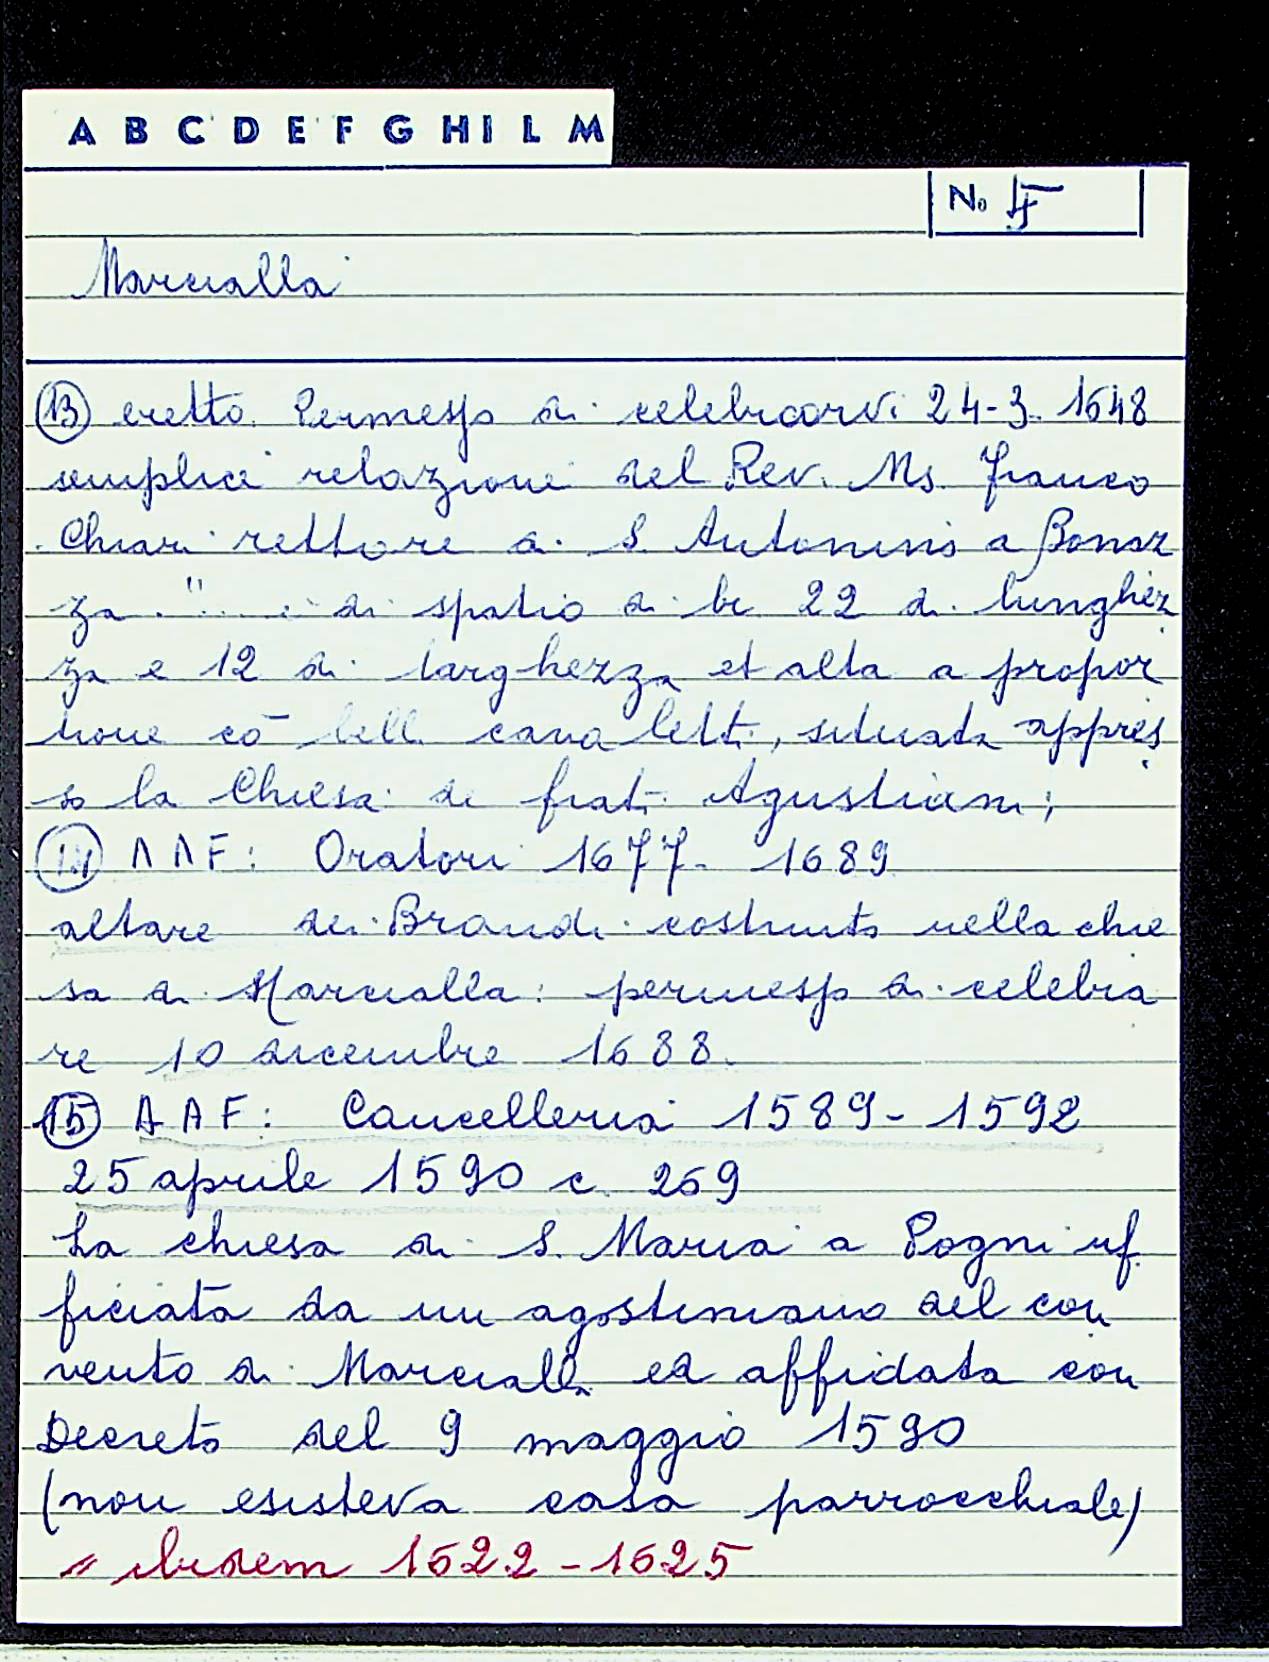 A B C D E F G H I L M
No 5
Marcialla
13 eretto. Permesso di celebrarvi 24-3-1648
semplice relazione del Rev. Ms. Franco
Chiari rettore di S. Antonino a Bonaz
za. "... di spatio di br 22 di lunghez
za e 12 di larghezza et alta a propor
tione cō bell. cana lett., situata appres
so la Chiesa de frati Agustiani;
14 AAF: Oratori 1677-1689
altare dei Brandi costruito nella chie
sa di Marcialla: permesso di celebra
re 10 dicembre 1688.
15 AAF: Cancelleria 1589-1592
25 aprile 1590 c. 269
La chiesa di S. Maria a Pogni uf
ficiata da un agostiniano del con
vento di Marcialla ed affidata con
Decreto del 9 maggio 1590
(non esisteva casa parrocchiale)
" ibidem 1622-1625